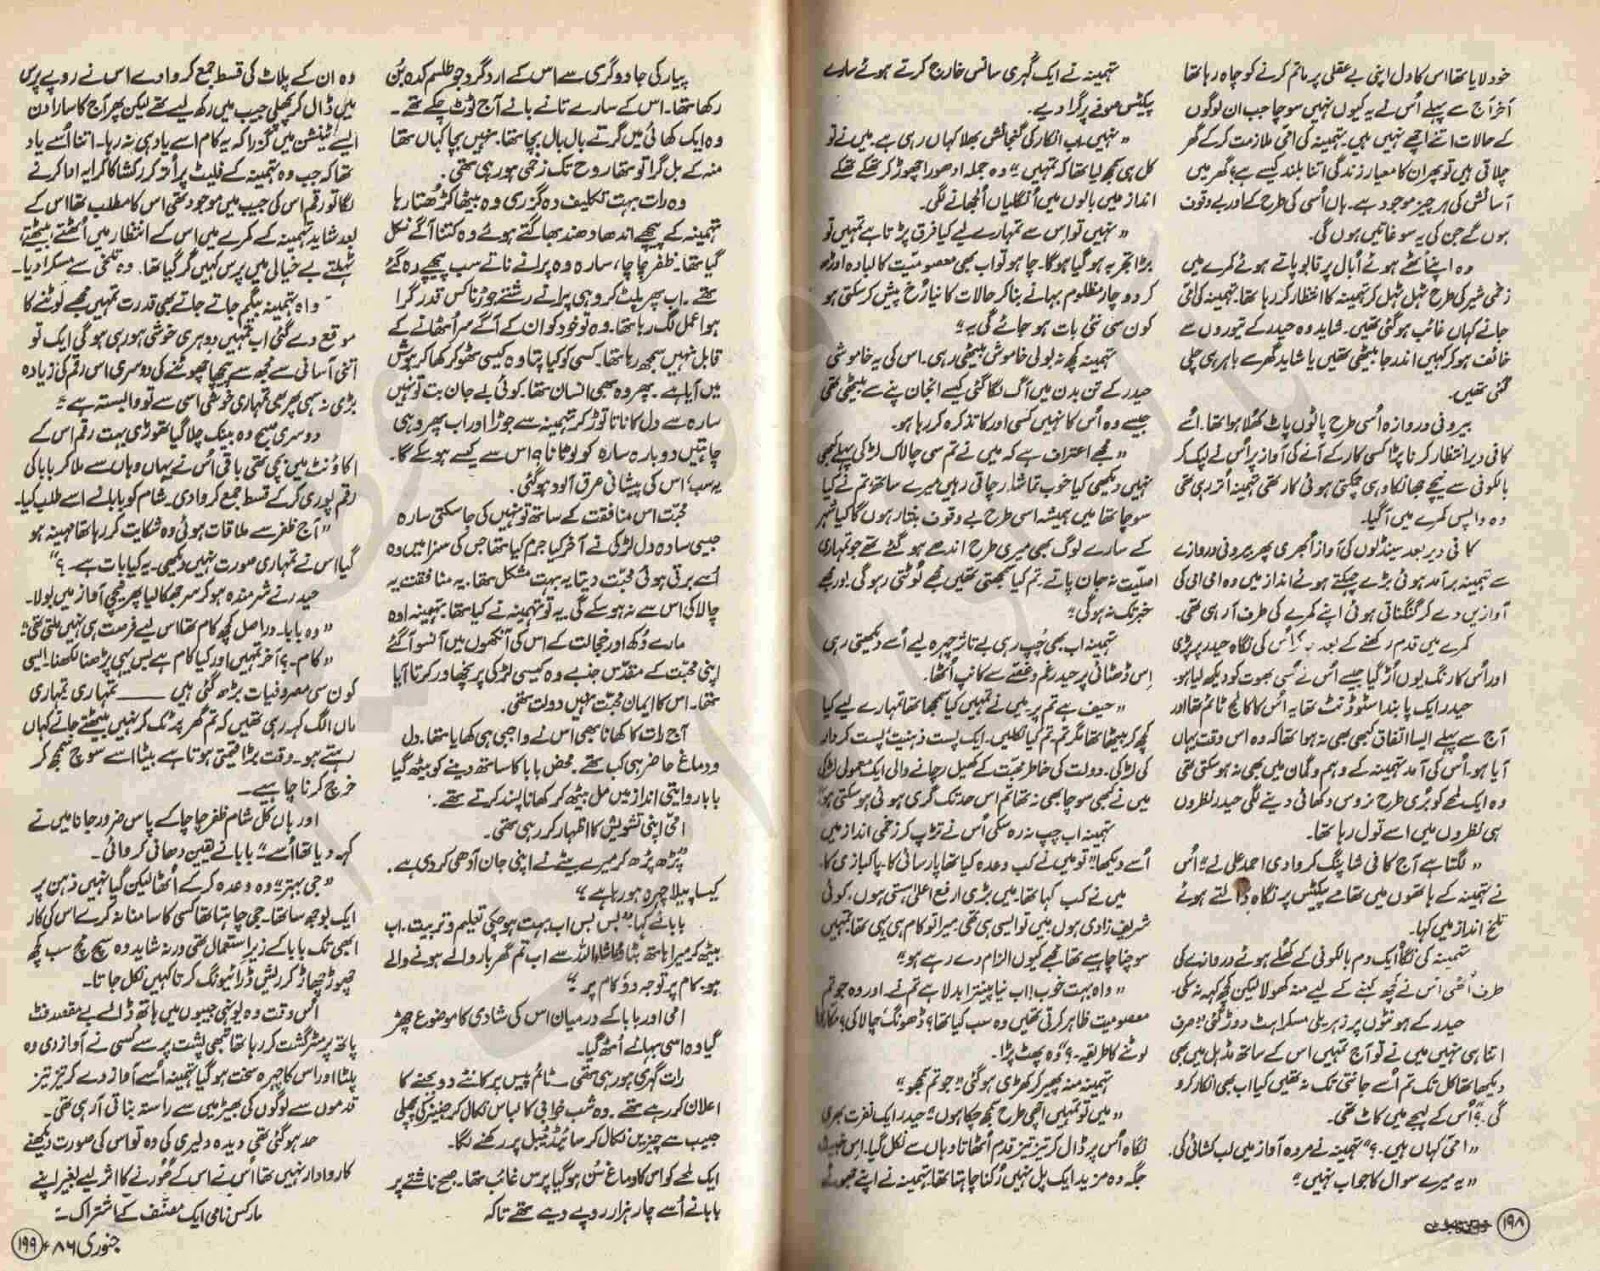 خود لایا تھا اس کا دل اپنی بے عقلی پر ماتم کرنے کو چاہ رہا تھا
آخر آج سے پہلے اُس نے یہ کیوں نہیں سوچا جب ان لوگوں
کے حالات اتنے اچھے نہیں ہیں۔ تہمینہ کی امی ملازمت کر کے گھر
چلاتی ہیں تو پھر ان کا معیار زندگی اتنا بلند کیسے ہے؟ گھر میں
آسائش کی ہر چیز موجود ہے۔ ہاں اُسی کی طرح کے اور بے وقوف
ہوں گے جن کی یہ سوغاتیں ہوں گی۔
وہ اپنے اٹھتے ہوئے اُبال پر قابو پاتے ہوئے کمرے میں
زخمی شیر کی طرح ٹہل ٹہل کر تہمینہ کا انتظار کر رہا تھا۔ تہمینہ کی امی
جانے کہاں غائب ہو گئی تھیں۔ شاید وہ حیدر کے تیوروں سے
خائف ہو کر کہیں اندر جا بیٹھی تھیں یا شاید گھر سے باہر ہی چلی
گئی تھیں۔
بیرونی دروازہ اُسی طرح پاٹوں پاٹ کھلا ہوا تھا۔ اُسے
کافی دیر انتظار کرنا پڑا کسی کار کے آنے کی آواز پر اُس نے لپک کر
بالکونی سے نیچے جھانکا وہی چمکتی ہوئی کار تھی تہمینہ اُتر رہی تھی
وہ واپس کمرے میں آ گیا۔
کافی دیر بعد سینڈلوں کی آواز اُبھری پھر بیرونی دروازے
سے تہمینہ برآمد ہوئی بڑے چہکتے ہوئے انداز میں وہ امی امی کی
آوازیں دے کر گنگناتی ہوئی اپنے کمرے کی طرف آ رہی تھی۔
کمرے میں قدم رکھنے کے بعد اُس کی نگاہ حیدر پر پڑی
اور اُس کا رنگ یوں اُڑ گیا جیسے اُس نے کسی بھوت کو دیکھ لیا ہو۔
حیدر ایک پابند اسٹوڈنٹ تھا یہ اُس کا کالج ٹائم تھا اور
آج سے پہلے ایسا اتفاق کبھی بھی نہ ہوا تھا کہ وہ اس وقت یہاں
آیا ہو۔ اُس کی آمد تہمینہ کے وہم و گمان میں بھی نہ ہو سکتی تھی
وہ ایک لمحے کو بُری طرح نروس دکھائی دینے لگی حیدر نظروں
ہی نظروں میں اسے تول رہا تھا۔
” لگتا ہے آج کافی شاپنگ کروا دی احمد علی نے“؛ اُس
نے تہمینہ کے ہاتھوں میں تھامے پیکٹس پر نگاہ ڈالتے ہوئے
تلخ انداز میں کہا۔
تہمینہ کی نگاہ ایک دم بالکونی کے کھلے ہوئے دروازے کی
طرف اُٹھی اُس نے کچھ کہنے کے لیے منہ کھولا لیکن کچھ کہہ نہ سکی۔
حیدر کے ہونٹوں پر زہریلی مسکراہٹ دوڑ گئی ”صرف
اتنا ہی نہیں میں نے تو آج تمہیں اس کے ساتھ ہڈیل میں بھی
دیکھا تھا کل تک تم اُسے جانتی تک نہ تھیں کیا اب بھی انکار کرو
گی ؟“ اُس کے لہجے میں کاٹ تھی۔
” امی کہاں ہیں۔ ؟“ تہمینہ نے مردہ آواز میں لب کشائی کی۔
” یہ میرے سوال کا جواب نہیں“
۱۹۸
تہمینہ نے ایک گہری سانس خارج کرتے ہوئے سارے
پیکٹس صوفے پر گرا دیے۔
” نہیں اب انکار کی گنجائش بھلا کہاں رہی ہے۔ میں نے تو
کل ہی سمجھ لیا تھا کہ تمہیں “ وہ جملہ ادھورا چھوڑ کر تھکے تھکے
انداز میں بالوں میں اُنگلیاں اُلجھانے لگی۔
” نہیں تو اس سے تمہارے لیے کیا فرق پڑتا ہے تمہیں تو
بڑا تجربہ ہو گیا ہوگا۔ چاہو تو اب بھی معصومیت کا لبادہ اوڑھ
کر دو چار مظلوم بہانے بنا کر حالات کا نیا رُخ پیش کر سکتی ہو
کون سی نئی بات ہو جائے گی یہ“
تہمینہ کچھ نہ بولی خاموش بیٹھی رہی۔ اُس کی یہ خاموشی
حیدر کے تن بدن میں آگ لگا گئی کیسے انجان پنے سے بیٹھی تھی
جیسے وہ اُس کا نہیں کسی اور کا تذکرہ کر رہا ہو۔
” مجھے اعتراف ہے کہ میں نے تم سی چالاک لڑکی پہلے کبھی
نہیں دیکھی کیا خوب تماشا رچاتی رہیں میرے ساتھ، تم نے کیا
سوچا تھا میں ہمیشہ اسی طرح بے وقوف بنتا رہوں گا کیا شہر
کے سارے لوگ بھی میری طرح اندھے ہو گئے تھے جو تمہاری
اصلیت نہ جان پاتے۔ تم کیا سمجھتی تھیں مجھے لُوٹتی رہو گی اور مجھے
خبر تک نہ ہوگی“
تہمینہ اب بھی چپ رہی بے تاثر چہرہ لیے اُسے دیکھتی رہی
اِس ڈھٹائی پر حیدر غم و غصے سے کانپ اُٹھا۔
” حیف ہے تم پر میں نے تمہیں کیا سمجھا تھا تمہارے لیے کیا
کچھ کر بیٹھا تھا مگر تم۔ تم کیا نکلیں۔ ایک پست ذہنیت، پست کردار
کی لڑکی۔ دولت کی خاطر محبت کے کھیل رچانے والی ایک معمولی لڑکی
میں نے کبھی سوچا بھی نہ تھا تم اس حد تک گری ہوئی ہو سکتی ہو“
تہمینہ اب چپ نہ رہ سکی اُس نے تڑپ کر زخمی انداز میں
اُسے دیکھا ”تو میں نے کب وعدہ کیا تھا پارسائی کا۔ پاکبازی کا۔
میں نے کب کہا تھا۔ میں بڑی ارفع اعلا ہستی ہوں، کوئی
شریف زادی ہوں میں تو ایسی ہی تھی۔ میرا تو کام ہی یہی تھا۔ تمہیں
سوچنا چاہیے تھا مجھے کیوں الزام دے رہے ہو“
” واہ بہت خوب! اب نیا پینترا بدلا ہے تم نے۔ اور وہ جو تم
معصومیت ظاہر کرتی تھیں وہ سب کیا تھا؟ ڈھونگ؟ چالاکی؟ مکاری؟
لوٹنے کا طریقہ۔ ؟“ وہ پھٹ پڑا۔
تہمینہ منہ پھیر کر کھڑی ہو گئی ”جو تم سمجھو“
” میں تو تمہیں اچھی طرح سمجھ چکا ہوں“ حیدر ایک نفرت بھری
نگاہ اُس پر ڈال کر تیز تیز قدم اُٹھاتا وہاں سے نکل گیا۔ اِس خبیث
جگہ وہ مزید ایک پل نہیں رُکنا چاہتا تھا۔ تہمینہ نے اپنے جھوٹے
پیار کی جادوگری سے اس کے ارد گرد جو طلسم کدہ بُن
رکھا تھا۔ اس کے سارے تانے بانے آج ٹوٹ چکے تھے۔
وہ ایک کھائی میں گرتے بال بال بچا تھا۔ نہیں بچا کہاں تھا
منہ کے بل گرا تو تھا روح تک زخمی ہو رہی تھی۔
وہ رات بہت تکلیف دہ گزری وہ بیٹھا کڑھتا رہا
تہمینہ کے پیچھے اندھا دھند بھاگتے ہوئے وہ کتنا آگے نکل
گیا تھا۔ ظفر چاچا، سارہ وہ پرانے ناتے سب پیچھے رہ گئے
تھے۔ اب پھر پلٹ کر وہی پرانے رشتے جوڑنا کس قدر گرا
ہوا عمل لگ رہا تھا۔ وہ تو خود کو ان کے آگے سر اُٹھانے کے
قابل نہیں سمجھ رہا تھا۔ کسی کو کیا پتا وہ کیسی ٹھوکر کھا کر ہوش
میں آیا ہے۔ پھر وہ بھی انسان تھا۔ کوئی بے جان بت تو نہیں
سارہ سے دل کا ناتا توڑ کر تہمینہ سے جوڑا اور اب پھر وہی
چاہتیں دوبارہ سارہ کو لوٹانا؟ اُس سے کیسے ہو سکے گا۔
یہ سب، اس کی پیشانی عرق آلود ہو گئی۔
محبت اس منافقت کے ساتھ تو نہیں کی جا سکتی سارہ
جیسی سادہ دل لڑکی نے آخر کیا جرم کیا تھا جس کی سزا میں وہ
اُسے برتی ہوئی محبت دیتا یہ بہت مشکل تھا۔ یہ منافقت یہ
چالاکی اس سے نہ ہو سکے گی۔ یہ تو تہمینہ نے کیا تھا۔ تہمینہ! اوہ
مارے دُکھ اور خجالت کے اس کی آنکھوں میں آنسو آ گئے
اپنی محبت کے مقدس جذبے وہ کیسی لڑکی پر نچھاور کرتا آیا
تھا۔ اس کا ایمان محبت نہیں دولت تھی۔
آج رات کا کھانا بھی اس نے واجبی ہی کھایا تھا۔ دل
و دماغ حاضر ہی کب تھے۔ محض بابا کا ساتھ دینے کو بیٹھ گیا
بابا روایتی انداز میں مل بیٹھ کر کھانا پسند کرتے تھے۔
امی اپنی تشویش کا اظہار کر رہی تھی۔
”پڑھ پڑھ کر میرے بیٹے نے اپنی جان آدھی کر دی ہے۔
کیسا پیلا چہرہ ہو رہا ہے“
بابا نے کہا۔ ”بس بس اب بہت ہو چکی تعلیم و تربیت۔ اب
بیٹھ کر میرا ہاتھ بٹاؤ ماشاء اللہ سے اب تم گھر بار والے ہونے والے
ہو، کام پر توجہ دو کام پر“
امی اور بابا کے درمیان اس کی شادی کا موضوع چھڑ
گیا وہ اسی بہانے اُٹھ گیا۔
رات گہری ہو رہی تھی۔ ٹائم پیس پر کانٹے دو بجنے کا
اعلان کر رہے تھے۔ وہ شب خوابی کا لباس نکال کر جینز کی پچھلی
جیب سے چیزیں نکال کر سائیڈ ٹیبل پر رکھنے لگا۔
ایک لمحے کو اس کا دماغ سُن ہو گیا پرس غائب تھا۔ صبح ناشتے پر
بابا نے اُسے چار ہزار روپے دیے تھے تاکہ
وہ ان کے پلاٹ کی قسط جمع کروا دے اس نے روپے پرس
میں ڈال کر پچھلی جیب میں رکھ لیے تھے لیکن پھر آج کا سارا دن
ایسے ٹینشن میں گزرا کہ یہ کام اسے یاد ہی نہ رہا۔ اتنا اُسے یاد
تھا کہ جب وہ تہمینہ کے فلیٹ پر اُتر کر رکشا کا کرایہ ادا کرنے
لگا تو رقم اس کی جیب میں موجود تھی اس کا مطلب تھا اس کے
بعد شاید تہمینہ کے کمرے میں اس کے انتظار میں اُٹھتے بیٹھتے
ٹہلتے بے خیالی میں پرس کہیں گر گیا تھا۔ وہ تلخی سے مسکرا دیا۔
” واہ تہمینہ بیگم جاتے جاتے بھی قدرت تمہیں مجھے لوٹنے کا
موقع دے گئی اب تمہیں دوہری خوشی ہو رہی ہو گی ایک تو
اتنی آسانی سے مجھ سے پیچھا چھوٹنے کی دوسری اس رقم کی زیادہ
بڑی نہ سہی پھر بھی تمہاری خوشی اسی سے تو وابستہ ہے“
دوسری صبح وہ بینک چلا گیا تھوڑی بہت رقم اس کے
اکاؤنٹ میں بچی تھی باقی اُس نے یہاں وہاں سے ملا کر بابا کی
رقم پوری کر کے قسط جمع کروا دی۔ شام کو بابا نے اسے طلب کیا۔
” آج ظفر سے ملاقات ہوئی وہ شکایت کر رہا تھا مہینہ ہو
گیا اس نے تمہاری صورت نہیں دیکھی۔ یہ کیا بات ہے۔ ؟“
حیدر نے شرمندہ ہو کر سر جھکا لیا پھر نیچی آواز میں بولا۔
” وہ بابا۔ دراصل کچھ کام تھا اس لیے فرصت ہی نہیں ملتی تھی“
” کام۔ ؟ آخر تمہیں اور کیا کام ہے بس یہی پڑھنا لکھنا۔ ایسی
کون سی مصروفیات بڑھ گئی ہیں ____ تمہاری تمہاری
ماں الگ کہہ رہی تھیں کہ تم گھر پر ٹک کر نہیں بیٹھتے جانے کہاں
رہتے ہو۔ وقت بڑا قیمتی ہوتا ہے بیٹا اسے سوچ سمجھ کر
خرچ کرنا چاہیے۔
اور ہاں کل شام ظفر چاچا کے پاس ضرور جانا میں نے
کہہ دیا تھا اُسے“ بابا نے یقین دہانی کروائی۔
” جی بہتر“ وہ وعدہ کر کے اُٹھا لیکن گیا نہیں ذہن پر
ایک بوجھ سا تھا۔ جی چاہتا تھا کسی کا سامنا نہ کرے اس کی کار
ابھی تک بابا کے زیر استعمال تھی ورنہ شاید وہ سچ مچ سب کچھ
چھوڑ چھاڑ کر ریش ڈرائیونگ کرتا کہیں نکل جاتا۔
اُس وقت وہ یونہی جیبوں میں ہاتھ ڈالے بے مقصد فٹ
پاتھ پر مٹر گشت کر رہا تھا تبھی پشت پر سے کسی نے آواز دی وہ
پلٹا اور اس کا چہرہ سخت ہو گیا تہمینہ اُسے آواز دے کر تیز تیز
قدموں سے لوگوں کی بھیڑ میں سے راستہ بناتی آ رہی تھی۔
حد ہو گئی تھی دیدہ دلیری کی وہ تو اس کی صورت دیکھنے
کا روادار نہیں تھا اُس نے اس کے گھورنے کا اثر لیے بغیر اپنے
مارکس نامی ایک مصنف کے اشتراک سے
جنوری ۸۶ء ۱۹۹